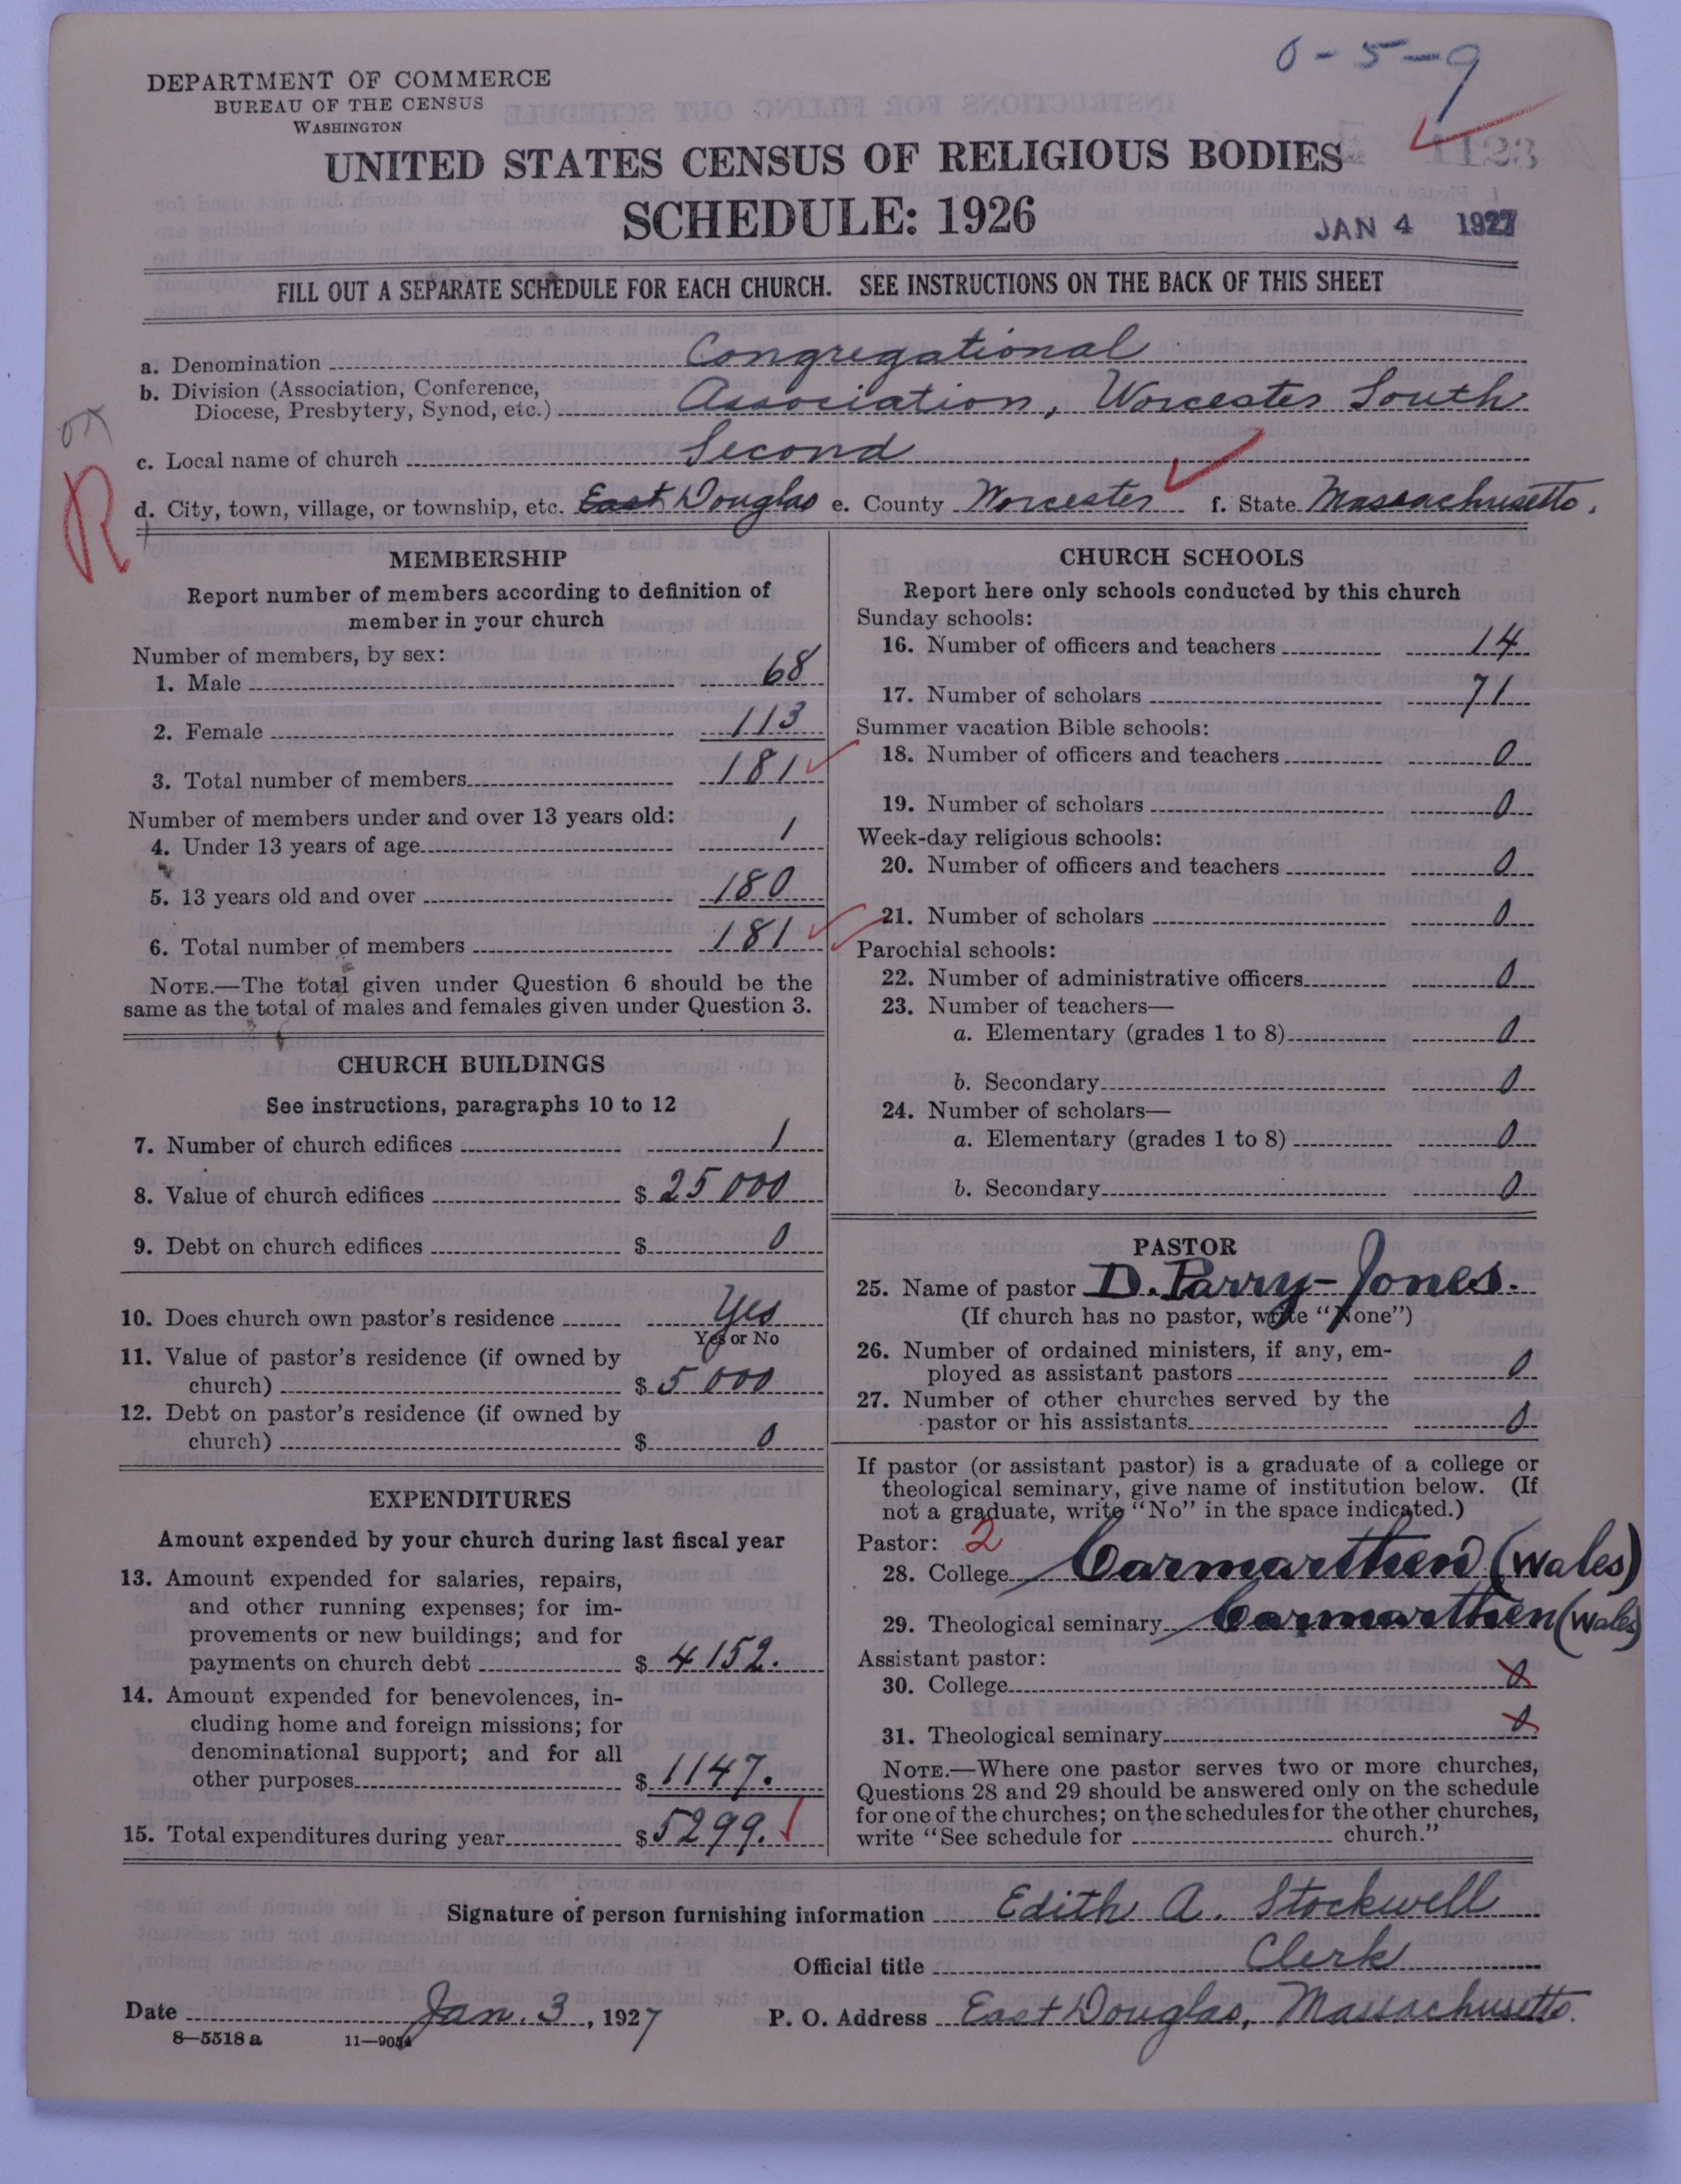 0-5-9
DEPARTMENT OF COMMERCE
BUREAU OF THE CENSUS
WASHINGTON
UNITED STATES CENSUS OF RELIGIOUS BODIES
SCHEDULE: 1926
JAN 4 1927
FILL OUT A SEPARATE SCHEDULE FOR EACH CHURCH. SEE INSTRUCTIONS ON THE BACK OF THIS SHEET
a. Denomination Congregational
b. Division (Association, Conference,
Diocese, Presbytery, Synod, etc.) Association, Worcester South
c. Local name of church Second
R
d. City, town, village, or township, etc. East Douglas e. County Worcester f. State Massachusetts.
MEMBERSHIP
Report number of members according to definition of
member in your church
Number of members, by sex:
1. Male 68
2. Female 113
3. Total number of members 181
Number of members under and over 13 years old:
4. Under 13 years of age 1
5. 13 years old and over 180
6. Total number of members 181
NOTE.—The total given under Question 6 should be the
same as the total of males and females given under Question 3.
CHURCH BUILDINGS
See instructions, paragraphs 10 to 12
7. Number of church edifices 1
8. Value of church edifices $ 25 000
9. Debt on church edifices $ 0
10. Does church own pastor's residence Yes
Yes or No
11. Value of pastor's residence (if owned by
church) $ 5 000
12. Debt on pastor's residence (if owned by
church) $ 0
EXPENDITURES
Amount expended by your church during last fiscal year
13. Amount expended for salaries, repairs,
and other running expenses; for im-
provements or new buildings; and for
payments on church debt $ 4152.
14. Amount expended for benevolences, in-
cluding home and foreign missions; for
denominational support; and for all
other purposes $ 1147.
15. Total expenditures during year $ 5299.
CHURCH SCHOOLS
Report here only schools conducted by this church
Sunday schools:
16. Number of officers and teachers 14
17. Number of scholars 71
Summer vacation Bible schools:
18. Number of officers and teachers 0
19. Number of scholars 0
Week-day religious schools:
20. Number of officers and teachers 0
21. Number of scholars 0
Parochial schools:
22. Number of administrative officers 0
23. Number of teachers—
a. Elementary (grades 1 to 8) 0
b. Secondary 0
24. Number of scholars—
a. Elementary (grades 1 to 8) 0
b. Secondary 0
PASTOR
25. Name of pastor D. Parry-Jones.
(If church has no pastor, write "None")
26. Number of ordained ministers, if any, em-
ployed as assistant pastors 0
27. Number of other churches served by the
pastor or his assistants 0
If pastor (or assistant pastor) is a graduate of a college or
theological seminary, give name of institution below. (If
not a graduate, write "No" in the space indicated.)
Pastor: 2
28. College Carmarthen (Wales)
29. Theological seminary Carmarthen (Wales)
Assistant pastor:
30. College 0
31. Theological seminary 0
NOTE.—Where one pastor serves two or more churches,
Questions 28 and 29 should be answered only on the schedule
for one of the churches; on the schedules for the other churches,
write "See schedule for church."
Signature of person furnishing information Edith A. Stockwell
Official title Clerk
Date Jan. 3, 1927 P. O. Address East Douglas, Massachusetts.
8—5518 a 11—9054